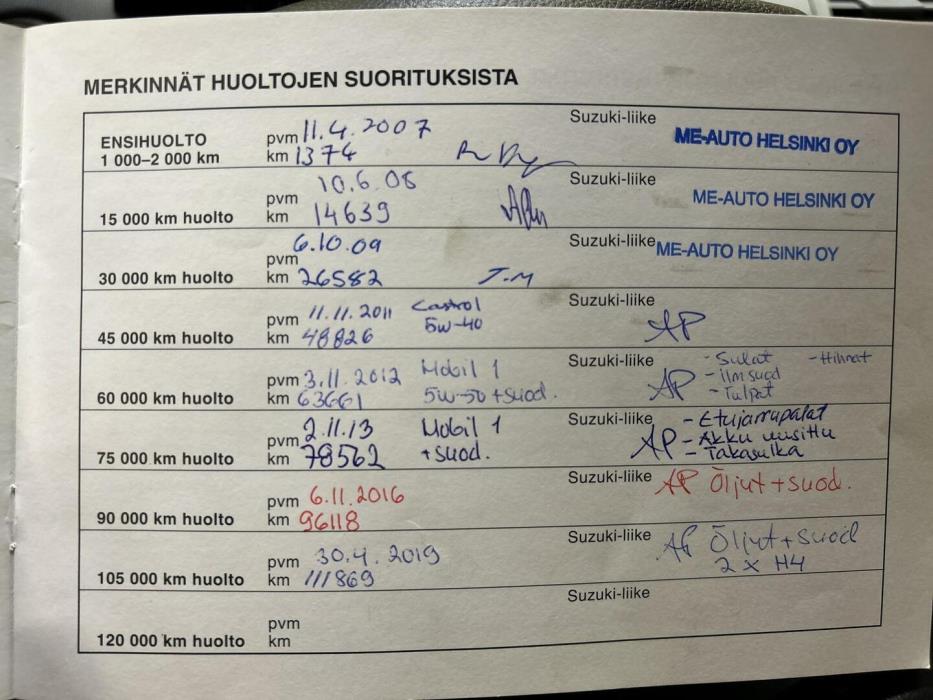 MERKINNÄT HUOLTOJEN SUORITUKSISTA
ENSIHUOLTO
1 000–2 000 km
pvm 11.4.2007
km 1374
Suzuki-liike
ME-AUTO HELSINKI OY
15 000 km huolto
pvm 10.6.08
km 14639
Suzuki-liike
ME-AUTO HELSINKI OY
30 000 km huolto
pvm 6.10.09
km 26582
J.M
Suzuki-liike
ME-AUTO HELSINKI OY
45 000 km huolto
pvm 11.11.2011
km 48826
Castrol
5W-40
Suzuki-liike
AP
60 000 km huolto
pvm 3.11.2012
km 63661
Mobil 1
5W-50 + suod.
Suzuki-liike
AP
- Sulat
- ilmsuod
- Tulpat
- Hihnat
75 000 km huolto
pvm 2.11.13
km 78562
Mobil 1
+ suod.
Suzuki-liike
AP
- Etujarrupalat
- Akku uusittu
- Takasulka
90 000 km huolto
pvm 6.11.2016
km 96118
Suzuki-liike
AP Öljut + suod.
105 000 km huolto
pvm 30.4.2019
km 111869
Suzuki-liike
AP Öljyt + suod
2 x H4
120 000 km huolto
pvm
km
Suzuki-liike